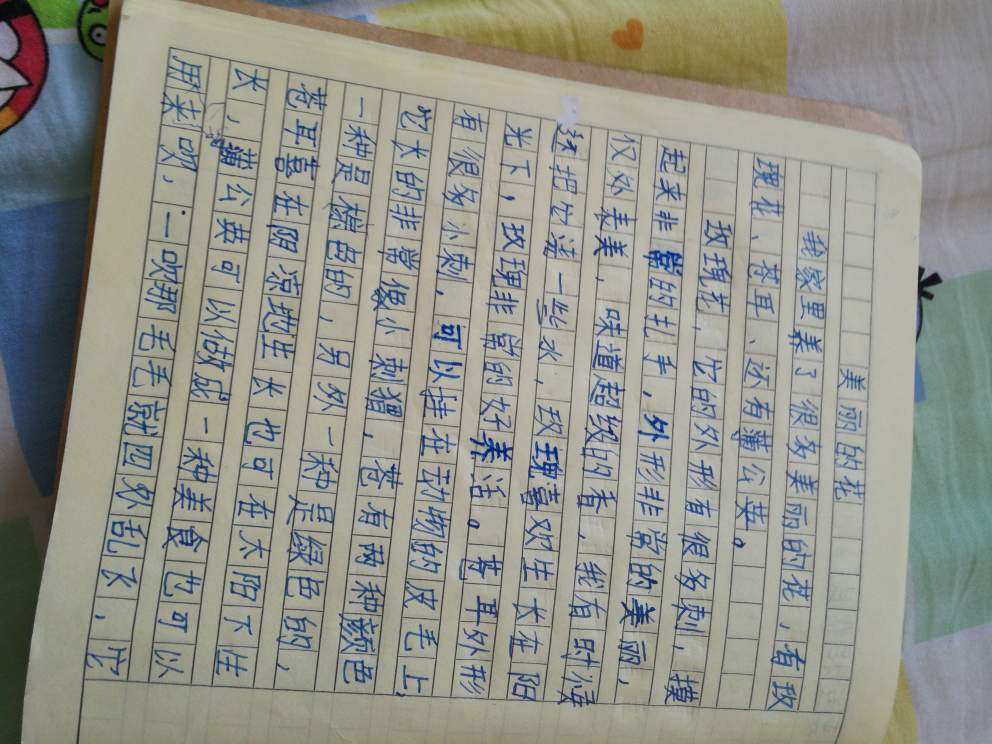 美丽的花
我家里养了很多美丽的花，有玫
瑰花、苍耳、还有蒲公英。
玫瑰花，它的外形有很多刺，摸
起来非常的扎手，外形非常的美丽，
仅外表美，味道超级的香，我有时候
把它浇一些水，玫瑰喜欢生大在阳
光下，玫瑰非常的好养活。苍耳外形
有很多小刺，可以挂在动物的皮毛上，
它大的非常像小刺猬，苍有两种颜色
一种是棕色的，另外一种是绿色的，
苍耳喜在阴凉地生长也可在太阳下生
长，蒲公英可以做成一种美食也可以
用来吹，一吹那毛毛就四处乱飞，它